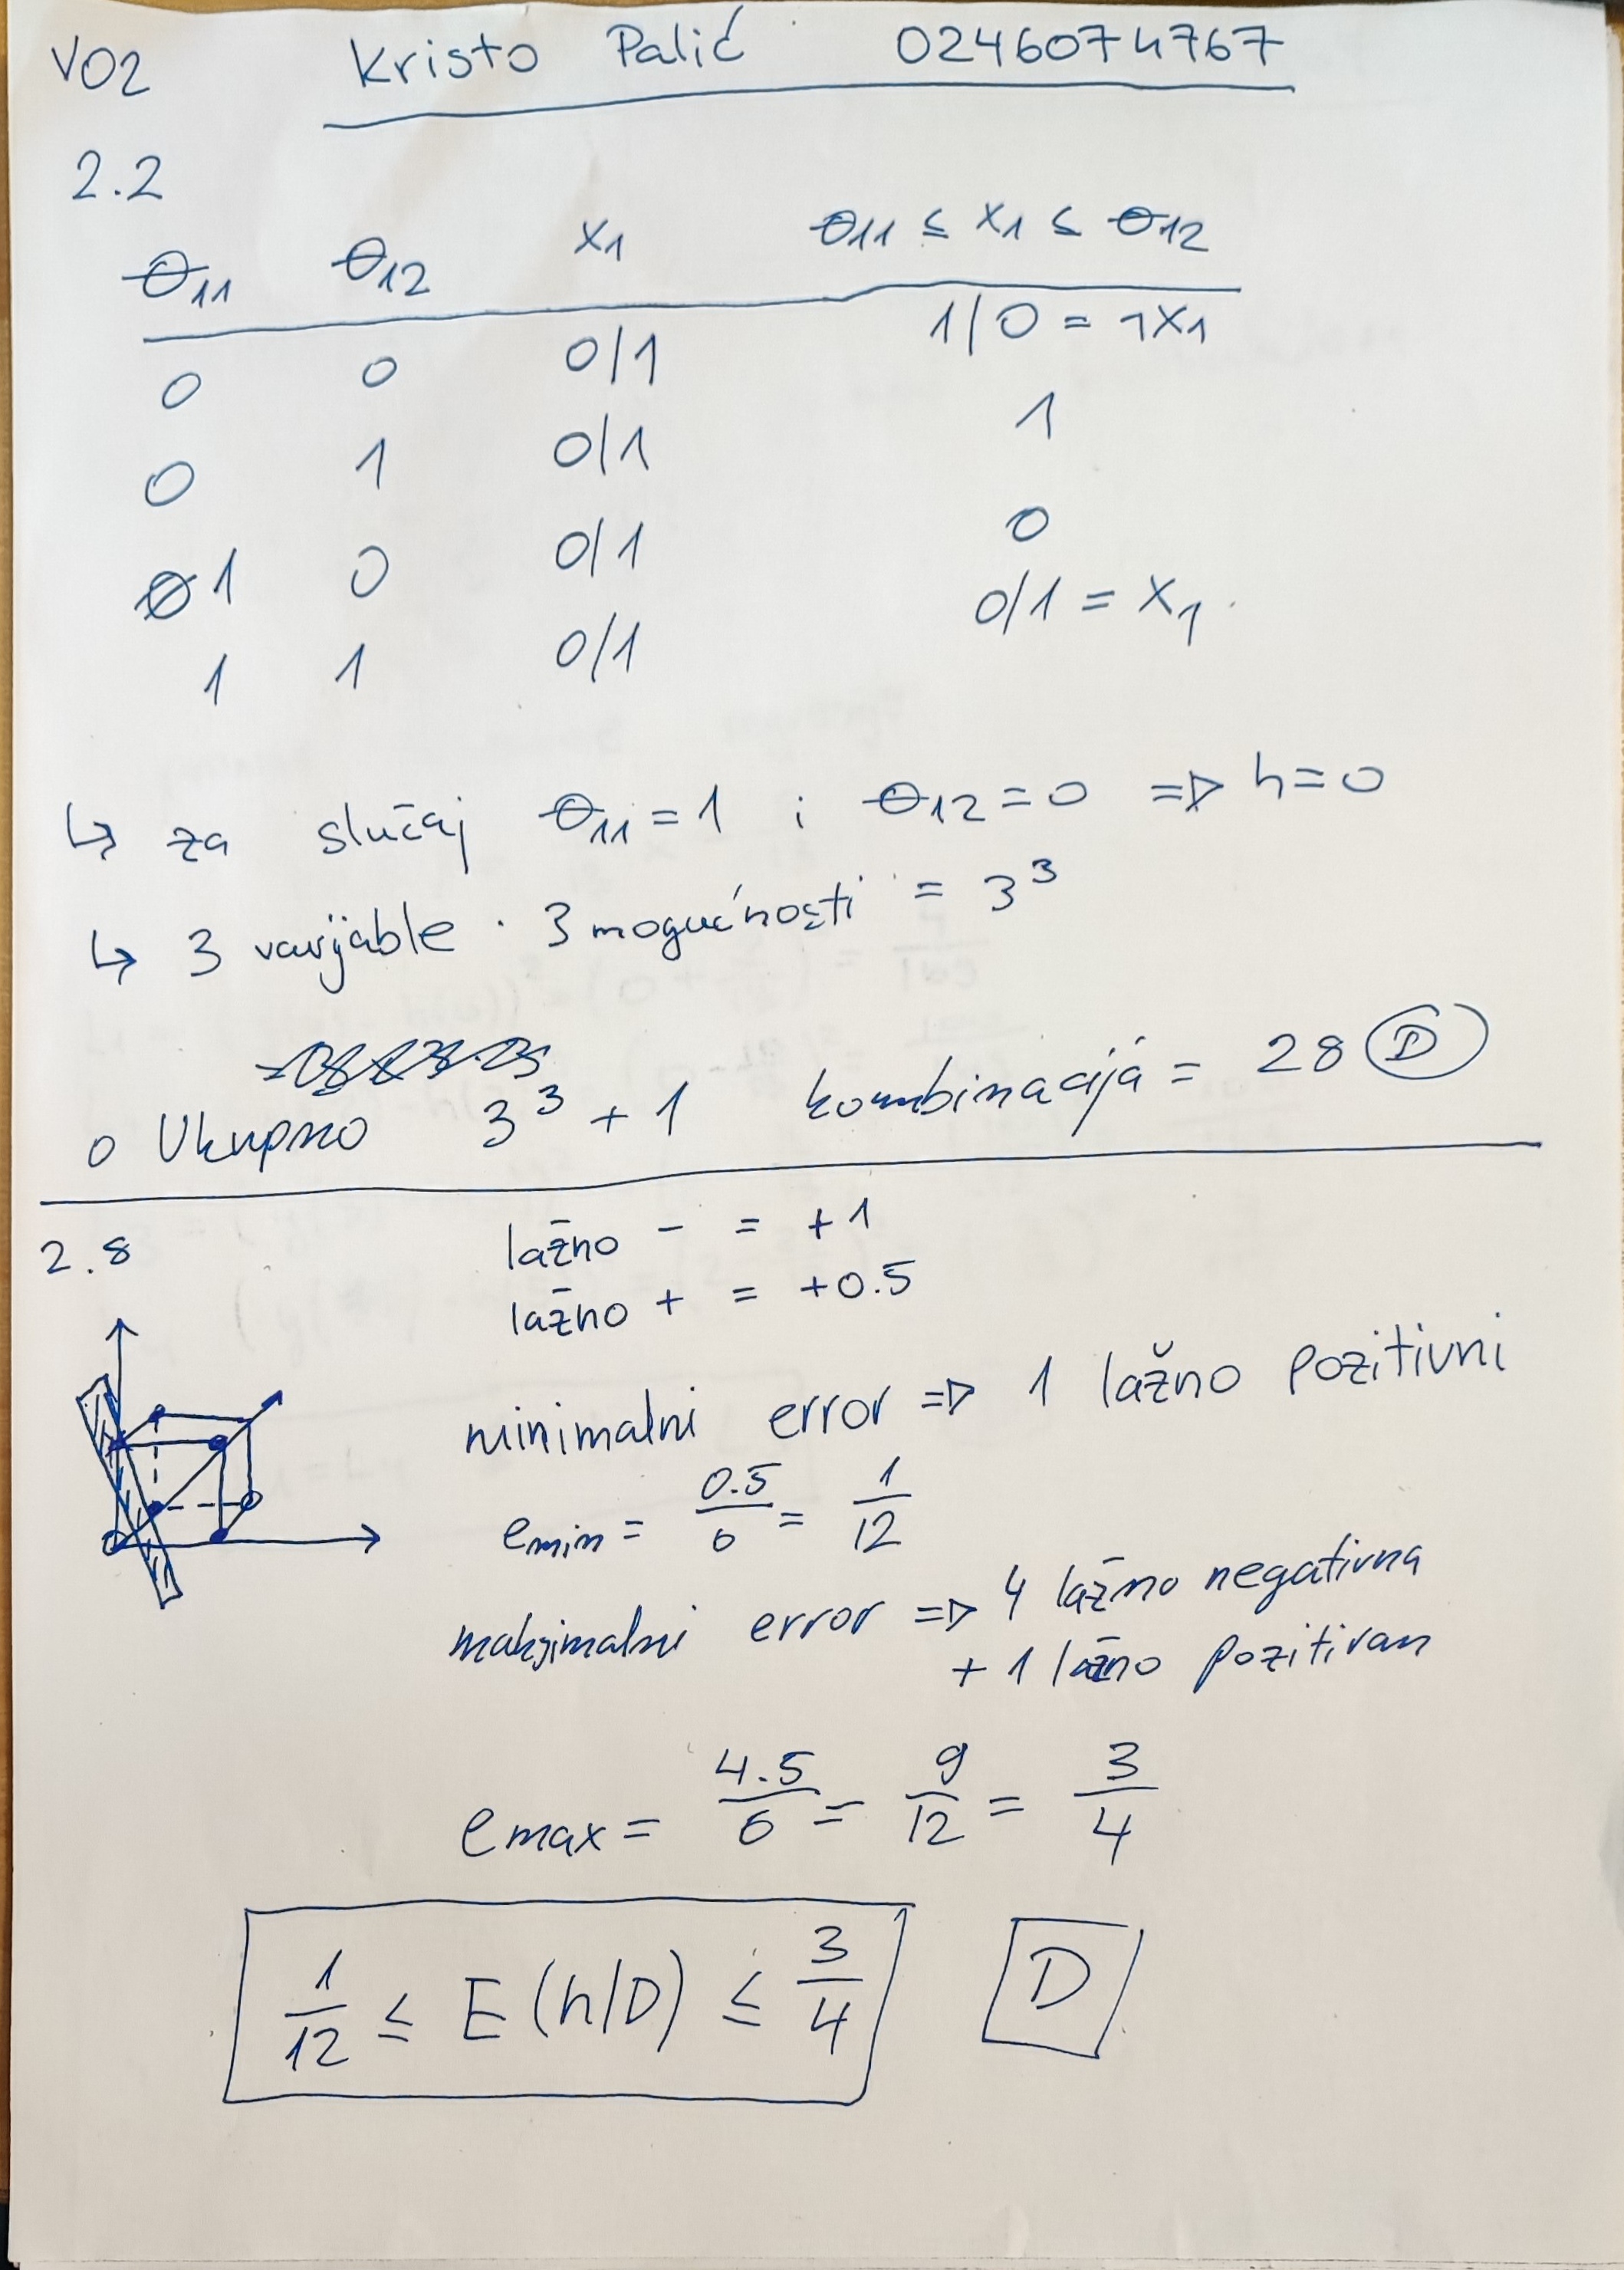 V02 Kristo Palić 0246074767
2.2
θ11 θ12 x1 θ11 ≤ x1 ≤ θ12
0 0 0/1 1/0 = ¬x1
0 1 0/1 1
1 0 0/1 0
1 1 0/1 0/1 = x1
↳ za slučaj θ11 = 1 i θ12 = 0 => h = 0
↳ 3 varijable · 3 mogućnosti = 3³
o Ukupno 3³ + 1 kombinacija = 28 D
2.8 lažno - = +1
lažno + = +0.5
minimalni error => 1 lažno pozitivni
emin = 0.5/6 = 1/12
maksimalni error => 4 lažno negativna
+ 1 lažno pozitivan
emax = 4.5/6 = 9/12 = 3/4
1/12 ≤ E(h|D) ≤ 3/4 D